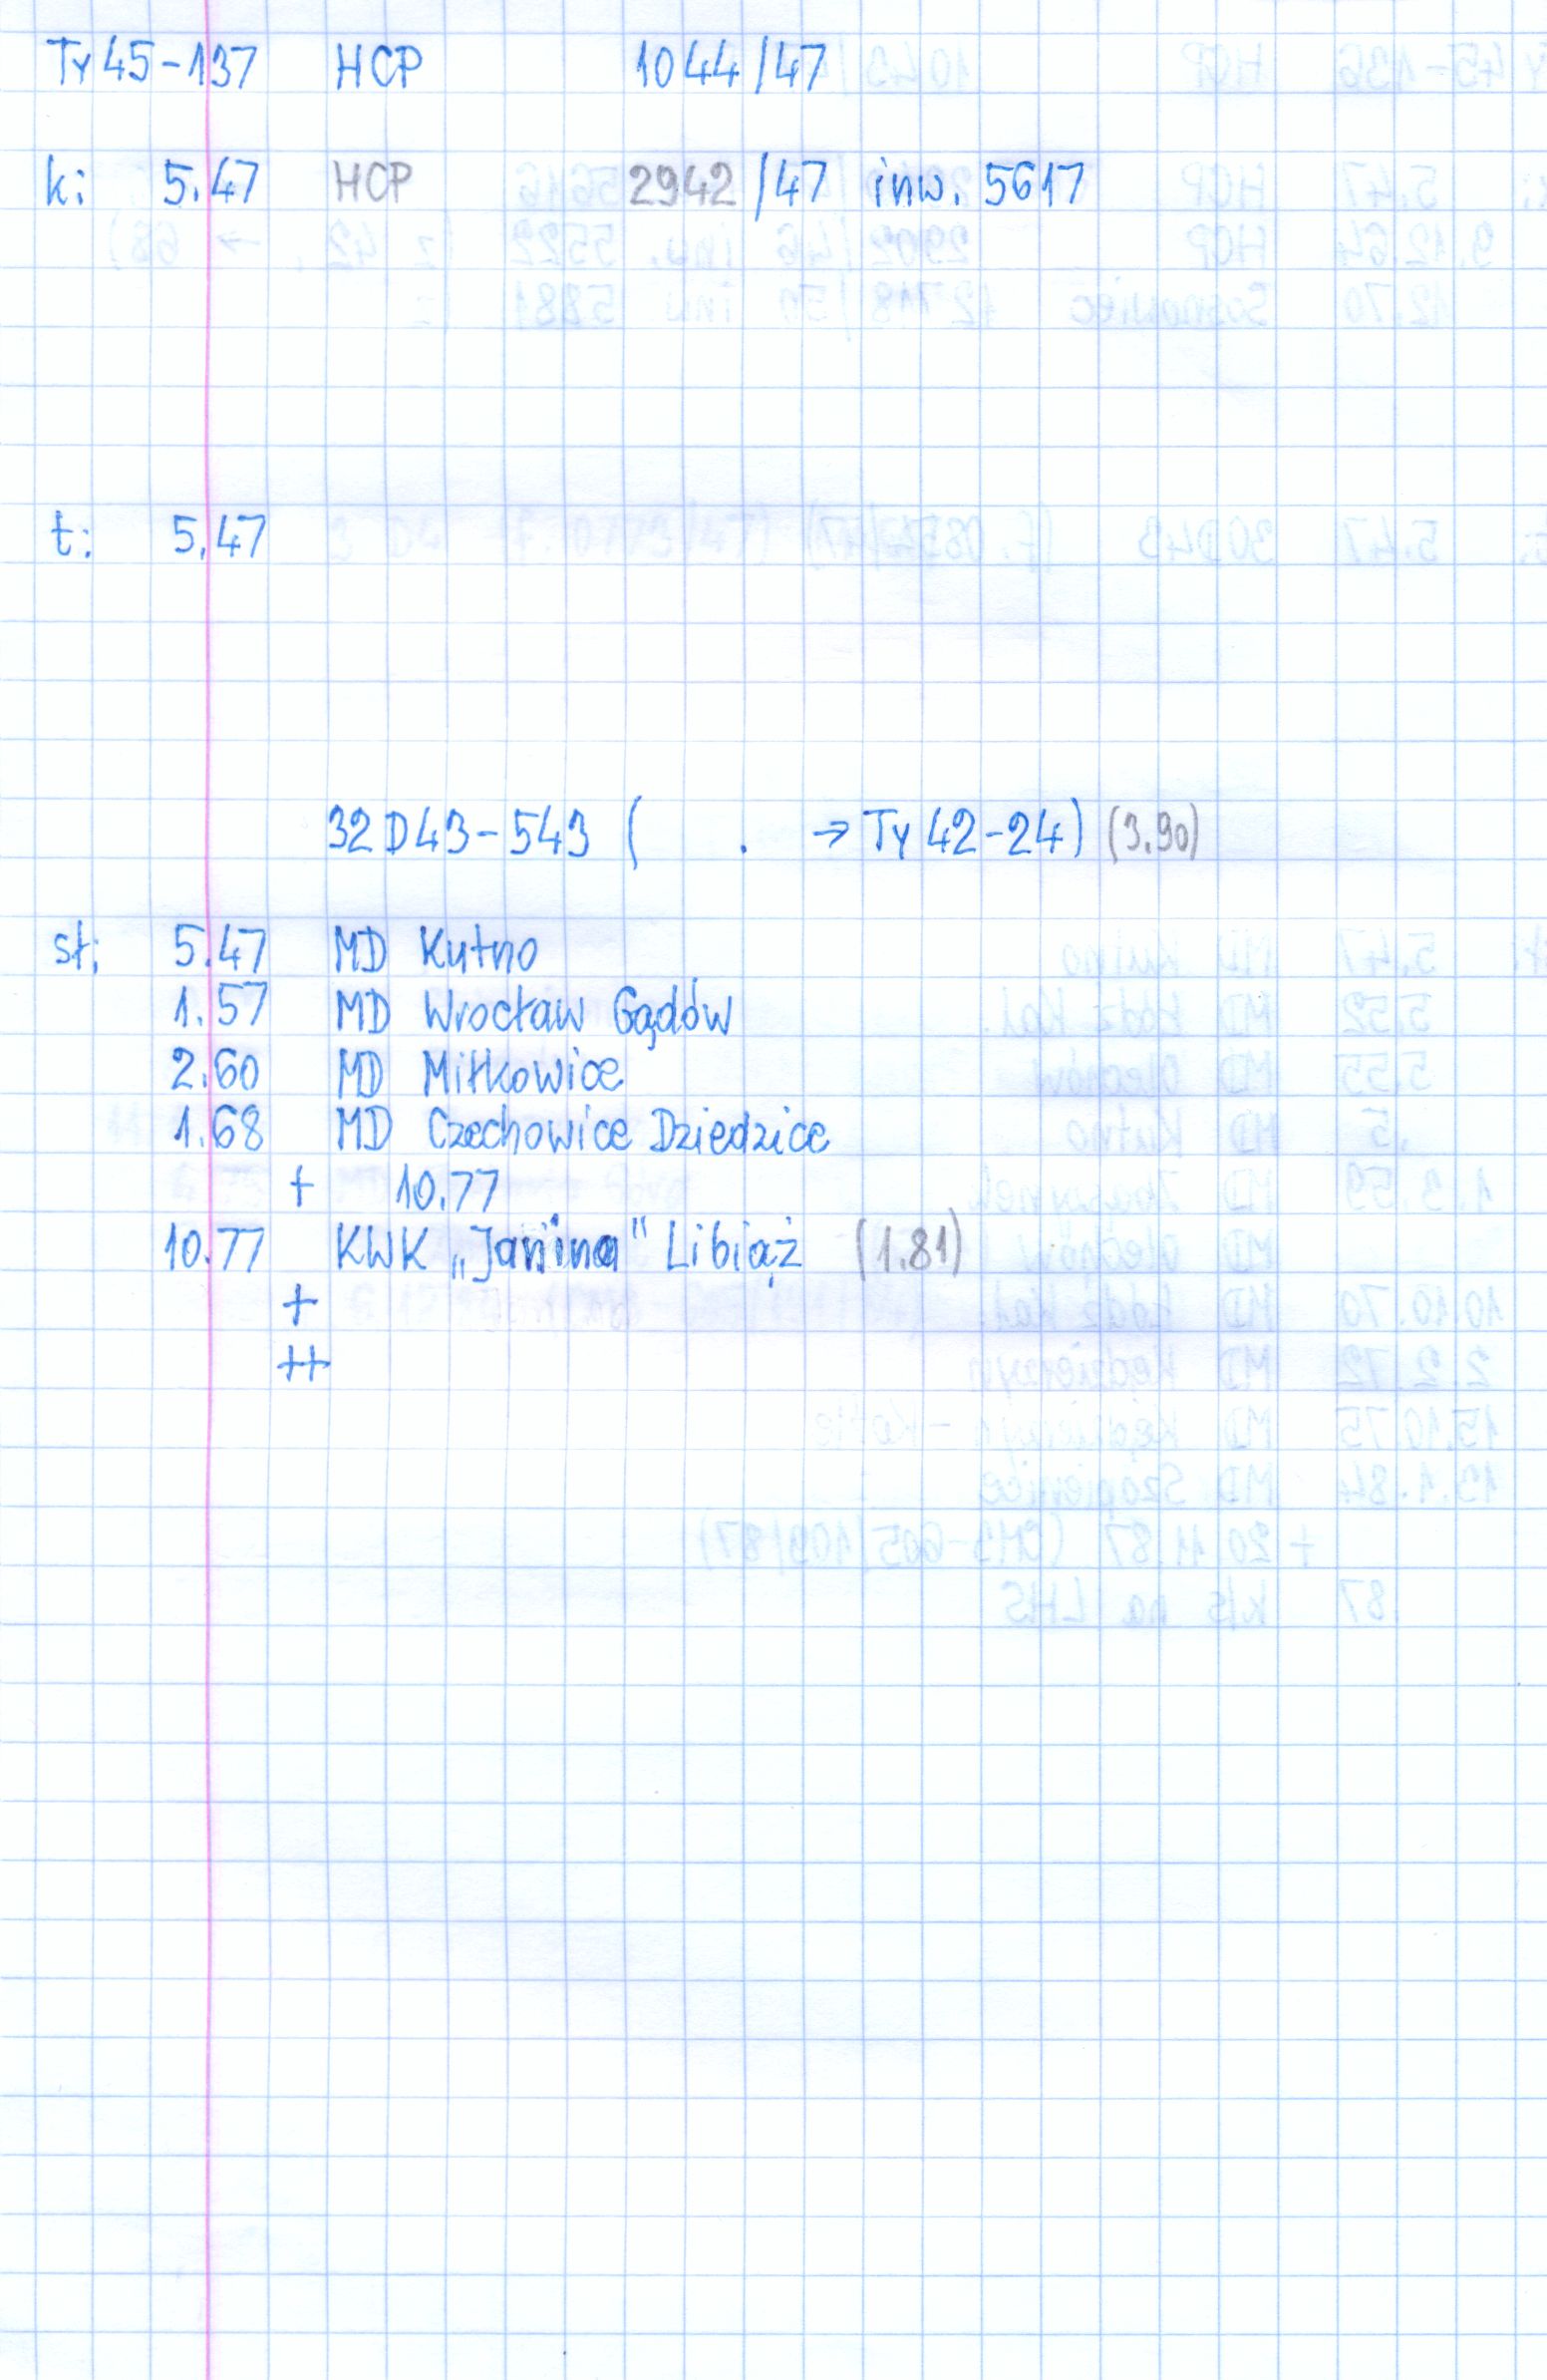 Ty45-137 HCP 1044/47
k: 5.47 HCP 2942/47 inw. 5617
t: 5.47
32D43-543 ( . → Ty42-24) (3.90)
st: 5.47 MD Kutno
1.57 MD Wrocław Gądów
2.60 MD Miłkowice
1.68 MD Czechowice Dziedzice
+ 10.77
10.77 KWK „Janina" Libiąż (1.81)
+
++